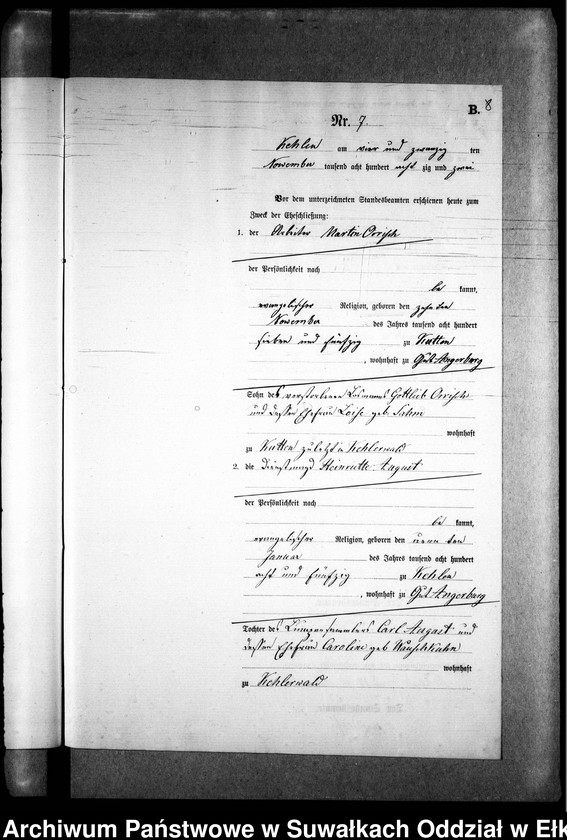 B. 8
Nr. 7.
Kehlen am vier und zwanzig ten
November tausend acht hundert acht zig und zwei
Vor dem unterzeichneten Standesbeamten erschienen heute zum
Zweck der Eheschließung:
1. der Arbeiter Martin Orrisch
der Persönlichkeit nach
be kannt,
evangelischer Religion, geboren den zehnten
November des Jahres tausend acht hundert
sieben und fünfzig zu Kutten
, wohnhaft zu Gut Angerburg
Sohn des verstorbenen Losmanns Gottlieb Orrisch
und dessen Ehefrau Loise geb. Sahm
wohnhaft
zu Kutten zuletzt in Kehlerwald
2. die Dienstmagd Heinriette August
der Persönlichkeit nach
be kannt,
evangelischer Religion, geboren den neun ten
Januar des Jahres tausend acht hundert
acht und fünfzig zu Kehlen
, wohnhaft zu Gut Angerburg
Tochter des Lumpensammlers Carl August und
dessen Ehefrau Caroline geb
wohnhaft
zu Kehlerwald
Archiwum Państwowe w Suwałkach Oddział w Ełk